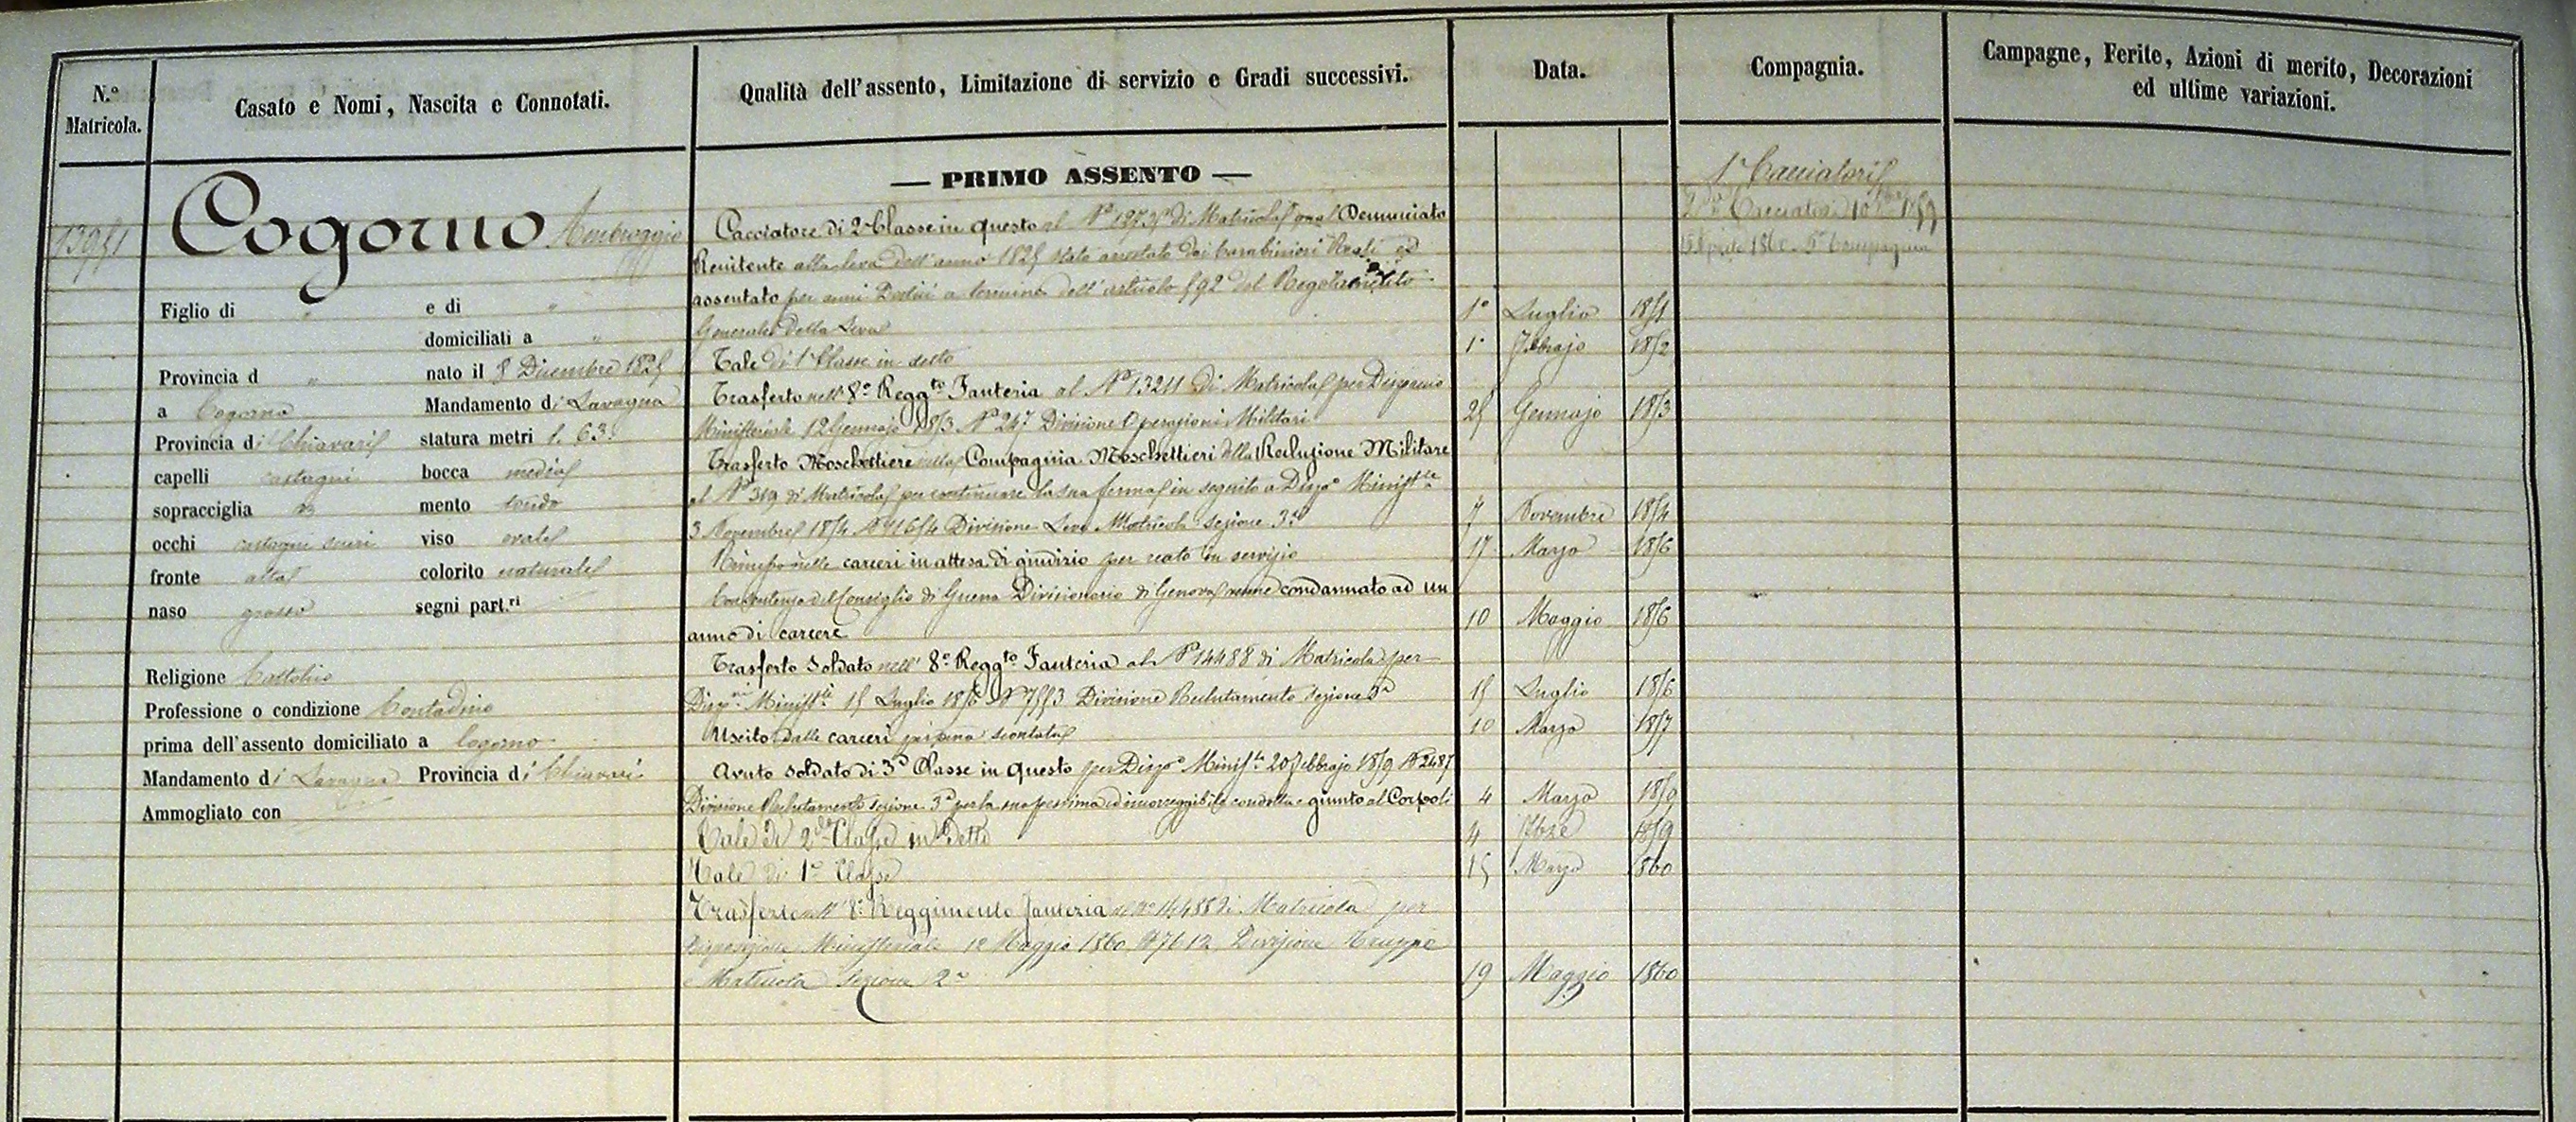 N.º Matricola.
Casato e Nomi, Nascita e Connotati.
Qualità dell'assento, Limitazione di servizio e Gradi successivi.
Data.
Compagnia.
Campagne, Ferite, Azioni di merito, Decorazioni
ed ultime variazioni.
13951
Cogorno Ambroggio
Figlio di " e di "
domiciliati a "
Provincia d " nato il 8 Dicembre 1825
a Cogorno Mandamento di Lavagna
Provincia di Chiavari statura metri 1. 63.
capelli castagni bocca media
sopracciglia mento tondo
occhi castagni scuri viso ovale
fronte alta colorito naturale
naso grosso segni part.ri
Religione Cattolico
Professione o condizione Contadino
prima dell'assento domiciliato a Cogorno
Mandamento di Lavagna Provincia di Chiavari
Ammogliato con
— PRIMO ASSENTO —
Cacciatore di 2a Classe in questo al Nº di Matricola qual Denunciato
Renitente alla leva dell'anno 1825 stato arrestato dai Carabinieri Reali ed
assentato per anni Dodici a termine dell'articolo 592 del Regolamento
Generale della Leva 1º Luglio 1851
Tale di 1a Classe in detto 1º Febbrajo 1852
Trasferto nell' 8º Reggto Fanteria al Nº 13211 di Matricola per Dispaccio
Ministeriale 12 Gennajo 1853 Nº 247 Divisione Operazioni Militari 25 Gennajo 1853
Trasferto Moschettiere nella Compagnia Moschettieri della Reclusione Militare
al Nº 319 di Matricola per continuare la sua ferma in seguito a Dispo Ministle
3 Novembre 1854 Nº 11654 Divisione Leva Matricola sezione 3a 7 Novembre 1854
nelle carceri in attesa di giudizio per reato in servizio 17 Marzo 1856
Con sentenza del Consiglio di Guerra Divisionario di Genova venne condannato ad un
anno di carcere 10 Maggio 1856
Trasferto Soldato nell' 8º Reggto Fanteria al Nº 14488 di Matricola per
Dispne Ministle 15 Luglio 1856 Nº 7553 Divisione Reclutamento sezione 3a 15 Luglio 1856
Uscito dalle carceri per pena scontata 10 Marzo 1857
Avuto soldato di 3a Classe in questo per Dispo Ministle 20 Febbrajo 1859 Nº 2487
Divisione Reclutamento sezione 3a per la sua pessima ed incorreggibile condotta e giunto al Corpo li 4 Marzo 1859
Tale di 2da Classe in detto 4 7bre 1859
Tale di 1a Classe 15 Marzo 1860
Trasferto nell' 8º Reggimento Fanteria al nº 14488 di Matricola per
disposizione Ministeriale 12 Maggio 1860 Nº 7612 Divisione Truppe
e Matricola Sezione 2a 19 Maggio 1860
1a Cacciatori
Cacciatori 10 1859
15 Aprile 1860 5a Compagnia